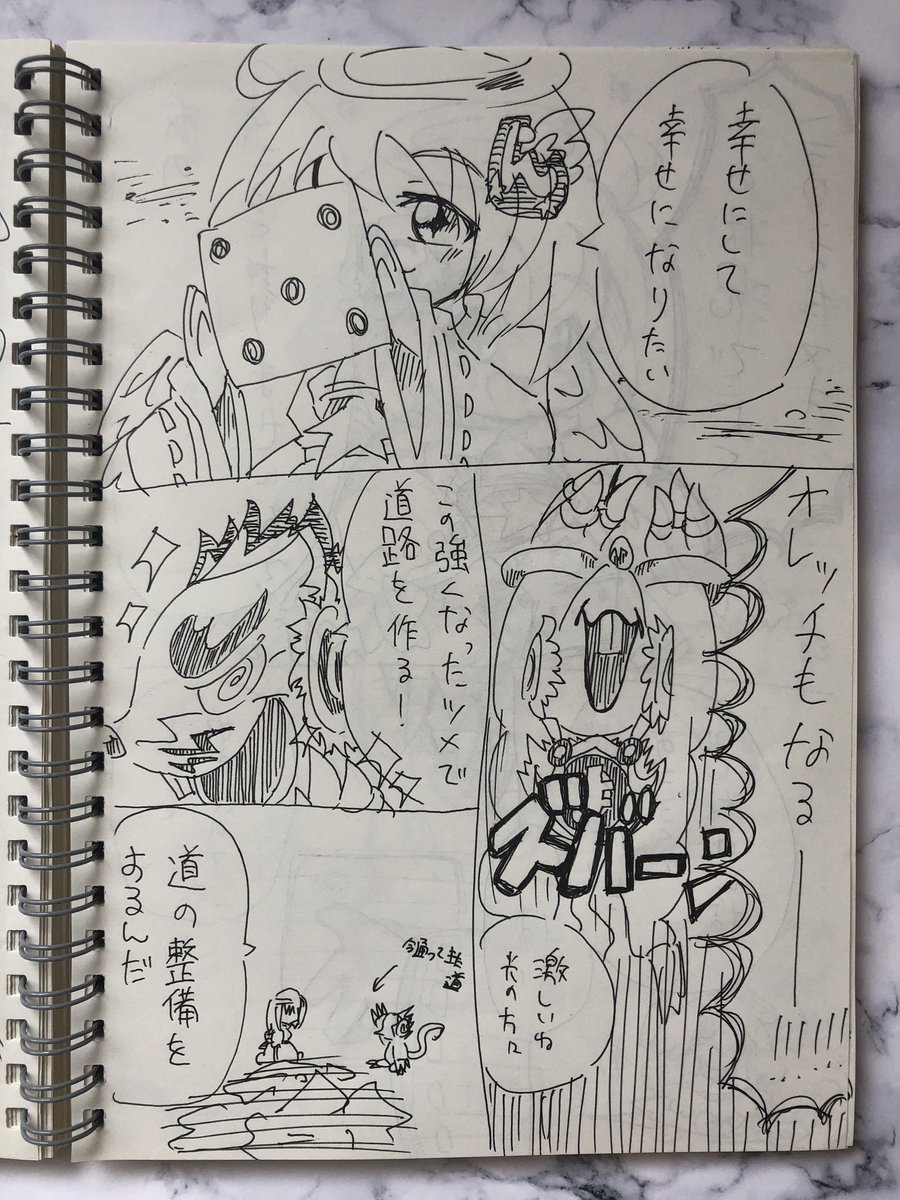 幸せにして
幸せになりたい
オレッチもなる──
ズバーン
激しいね
この強くなったツメで
道路を作る!
道の整備を
するんだ
今通って来た
道